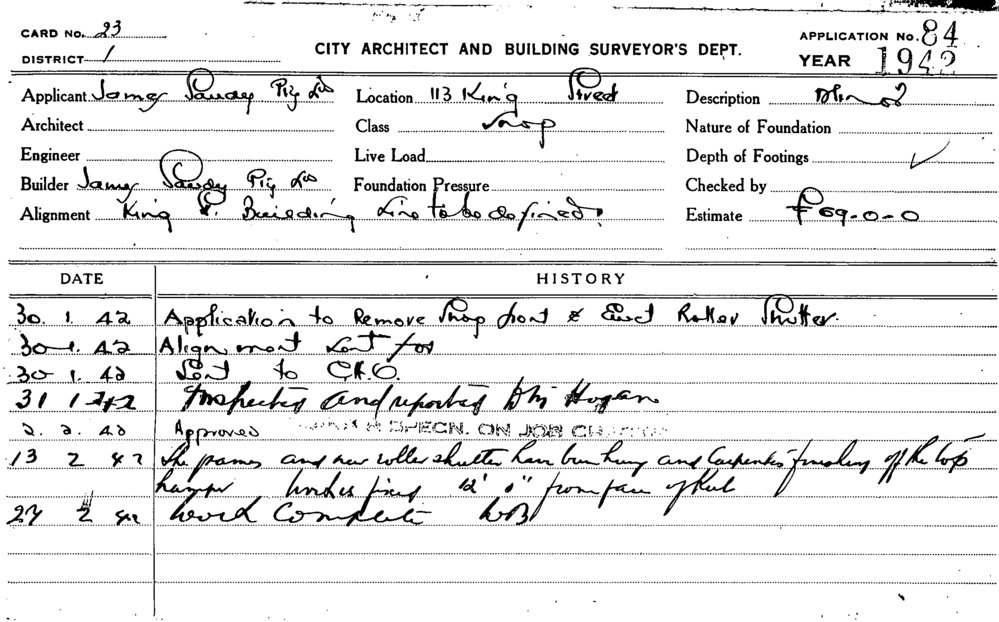 CARD No. 23
APPLICATION No. 84
DISTRICT 1
CITY ARCHITECT AND BUILDING SURVEYOR'S DEPT.
YEAR 1942
Applicant James Sandy Pty Ltd Location 113 King Street Description
Architect Class Shop Nature of Foundation
Engineer Live Load Depth of Footings
Builder James Sandy Pty Ltd Foundation Pressure Checked by
Alignment King St. Building Line to be defined. Estimate £69-0-0
DATE HISTORY
30. 1. 42 Application to Remove Shop front & Erect Roller Shutter.
30-1. 42 Alignment sent for
30 1. 42 Sent to C.H.O.
31 1 42 Inspected and reported Hogan
2. 2. 42 Approved SPECN. ON JOB
13 2 42 The frames and new roller shutter have been hung and Carpenters finishing off the top
hamper from face of Kerb
27 2 42 Work Complete WB